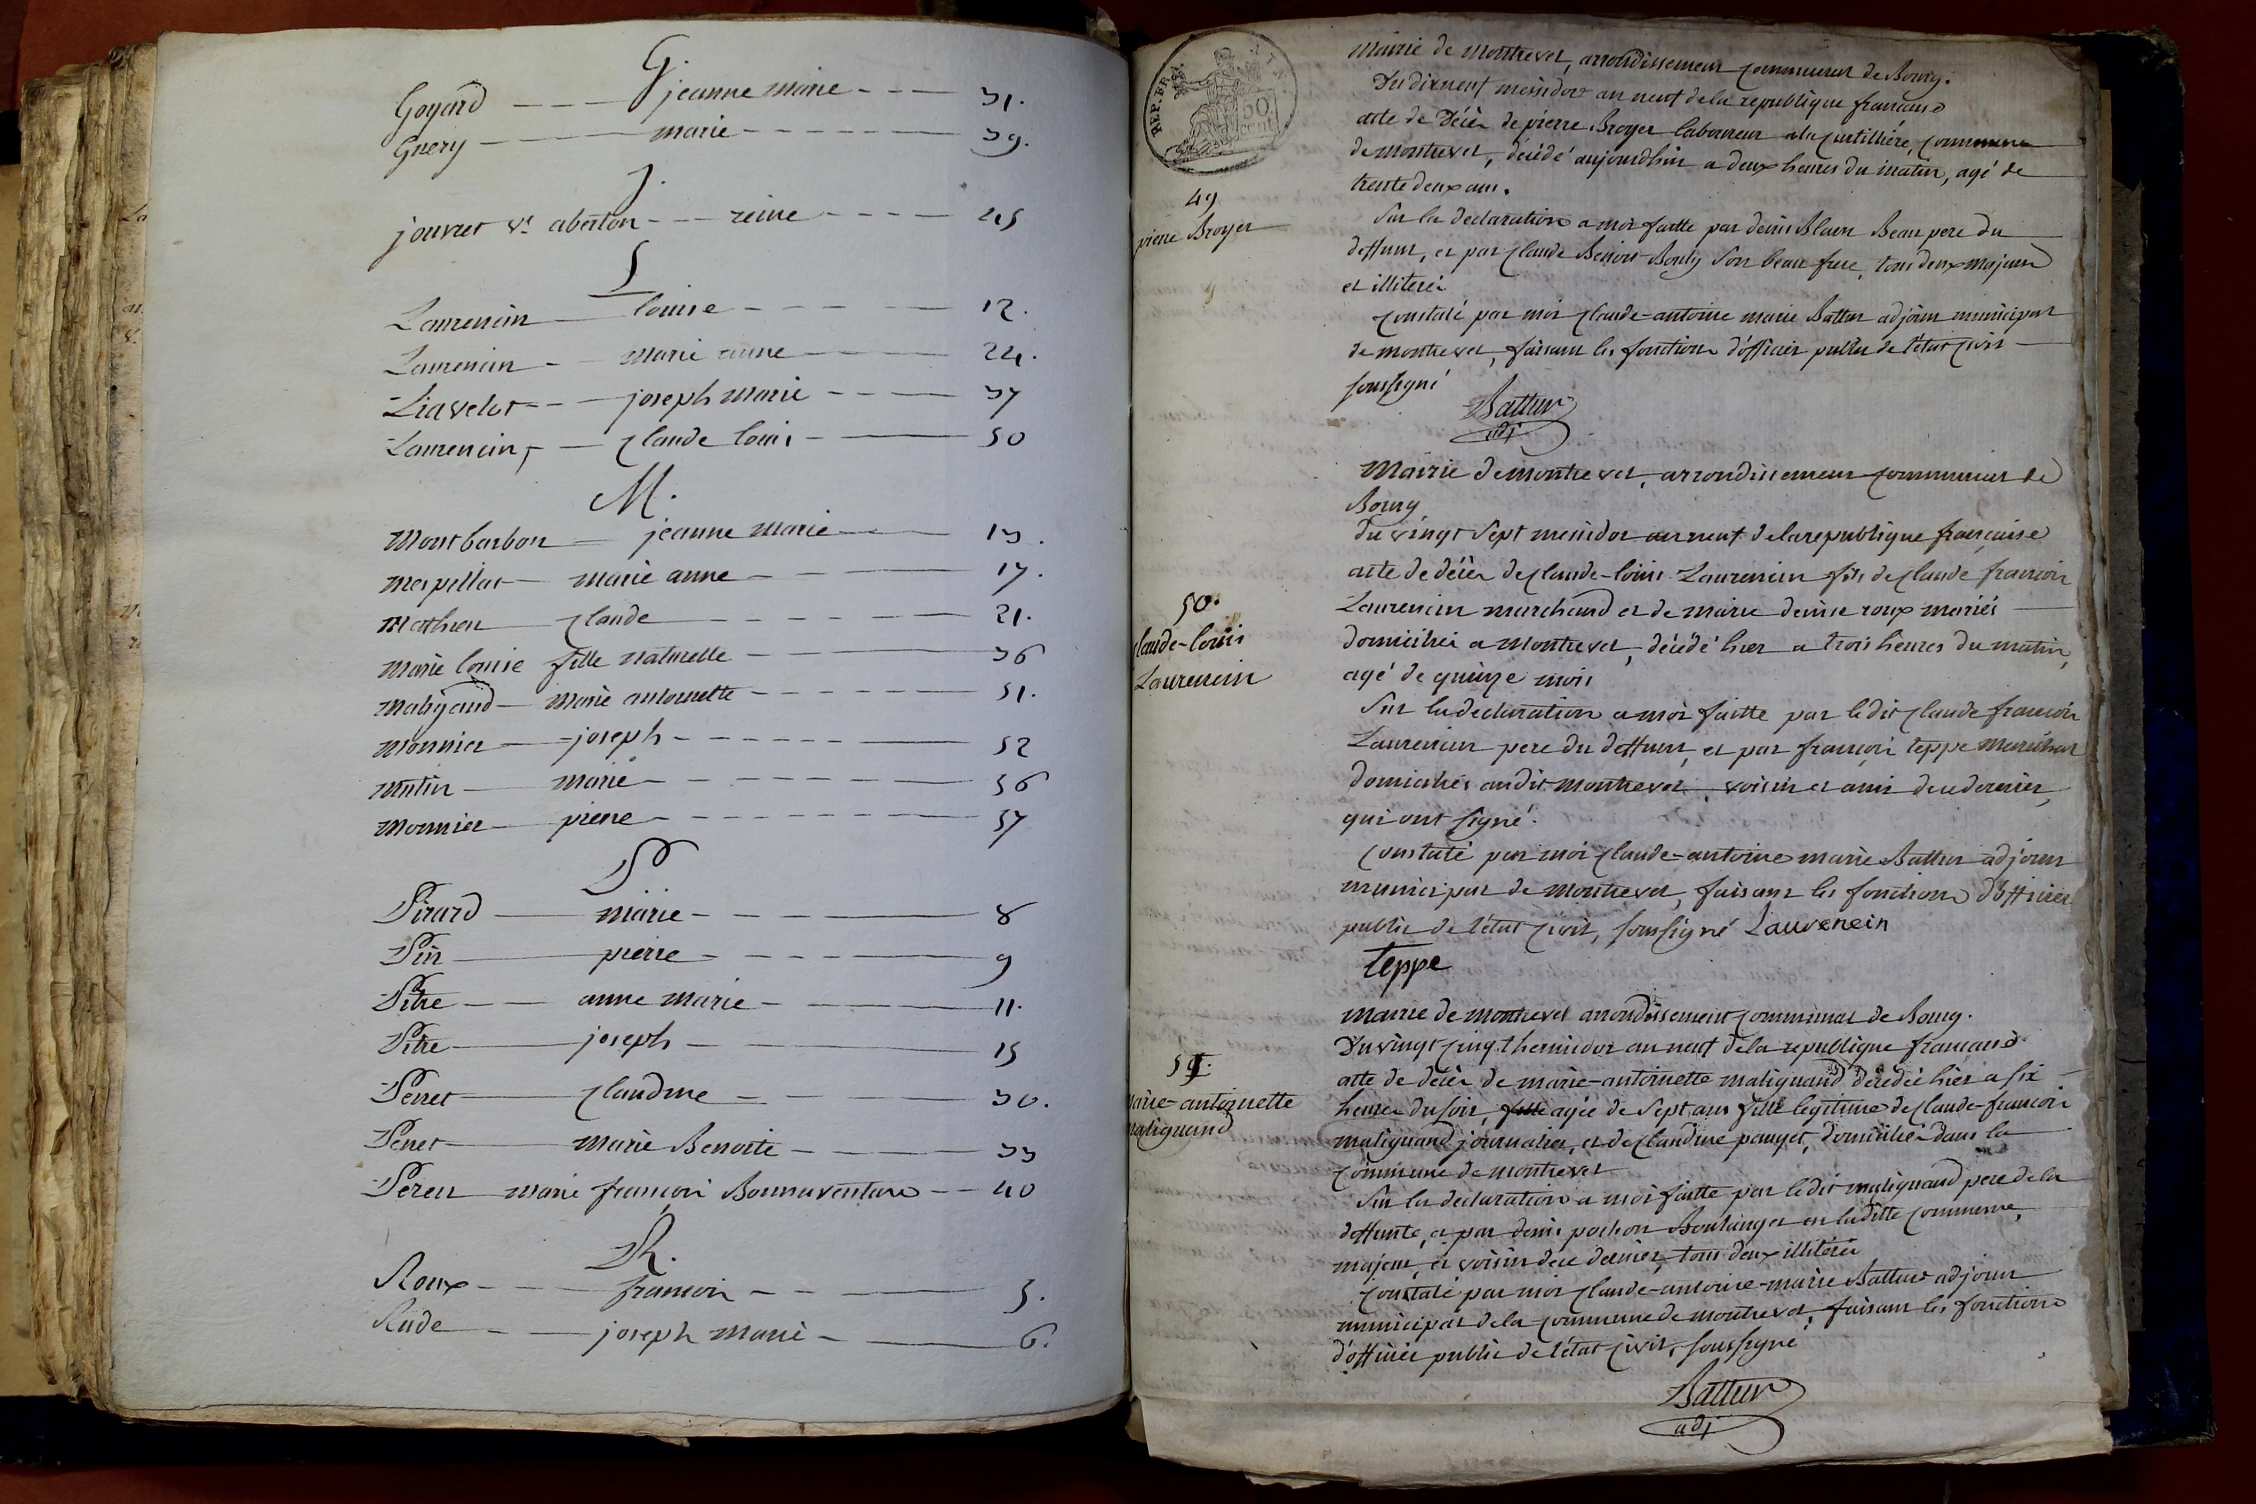 G
Goyard jeanne marie 31.
Guery marie 39.
J.
jouvret ve aberton reine 25
L
Laurencin louise 12.
Laurencin marie anne 24.
Liavelot joseph marie 37
Laurencin, Claude louis 50
M.
Montbarbon jeanne marie 13.
Mespillat marie anne 17.
Mathieu Claude 21.
Marie louise fille naturelle 36
Maligand Marie antoinette 51.
Monnier joseph 52
Mutin marie 56
Monnier pierre 57
P
Pirard marie 8
Pin pierre 9
Pitre anne marie 11.
Pitre joseph 15
Perret Claudine 30.
Perret Marie Benoite 33
marie françois Bonnaventure 40
R.
Roux françois 5.
Rude joseph Marie 6.
REP. FRA.
50 cent
Mairie de Montrevel, arrondissement Communal de Bourg.
Du dixneuf messidor an neuf de la republique française
acte de Décès de pierre Broyer laboureur a la Curtillière, Commune
de Montrevel, décédé aujourdhui a deux heures du matin, agé de
trente deux ans.
49
pierre Broyer
Sur la declaration a moi faitte par denis Blanc Beau pere du
deffunt, et par Claude Benoit Bouly son beau frere, tous deux majeurs
et illiterés
Constaté par moi Claude-antoine marie Battur adjoint municipal
de montrevel, faisant les fonctions d'officier public de l'état Civil
soussigné
Battur
adj
Mairie de Montrevel, arrondissement Communal de
Bourg
Du vingt Sept messidor an neuf de la republique française
acte de décès de Claude-louis Laurencin fils de Claude françois
50.
Claude-louis
Laurencin
Laurencin marchand et de marie denise roux mariés
domiciliés a Montrevel, décédé hier a trois heures du matin,
agé de quinze mois
Sur la declaration a moi faitte par ledit Claude françois
Laurencin pere du deffunt, et par françois teppe
domiciliés audit Montrevel, voisin et ami de ce dernier,
qui ont signé.
Constaté par moi Claude-antoine marie Battur adjoint
municipal de Montrevel, faisant les fonctions d'officier
public de l'état Civil, soussigné Laurencin
teppe
Mairie de Montrevel arrondissement Communal de Bourg.
Du vingt Cinq thermidor an neuf de la republique française.
51.
marie-antoinette
maliguand
acte de décès de marie-antoinette maliguand décédée hier a six
heures du soir, agée de sept ans fille legitime de Claude-françois
maliguand journalier, et de Claudine pauget, domiciliés dans la
Commune de montrevel
Sur la declaration a moi faitte par ledit maliguand pere de la
deffunte, et par denis pochon Boulanger en laditte Commune,
majeur, et voisin de ce dernier, tous deux illitérés
Constaté par moi Claude-antoine-marie Battur adjoint
municipal de la Commune de montrevel, faisant les fonctions
d'officier public de l'état Civil, soussigné
Battur
adj